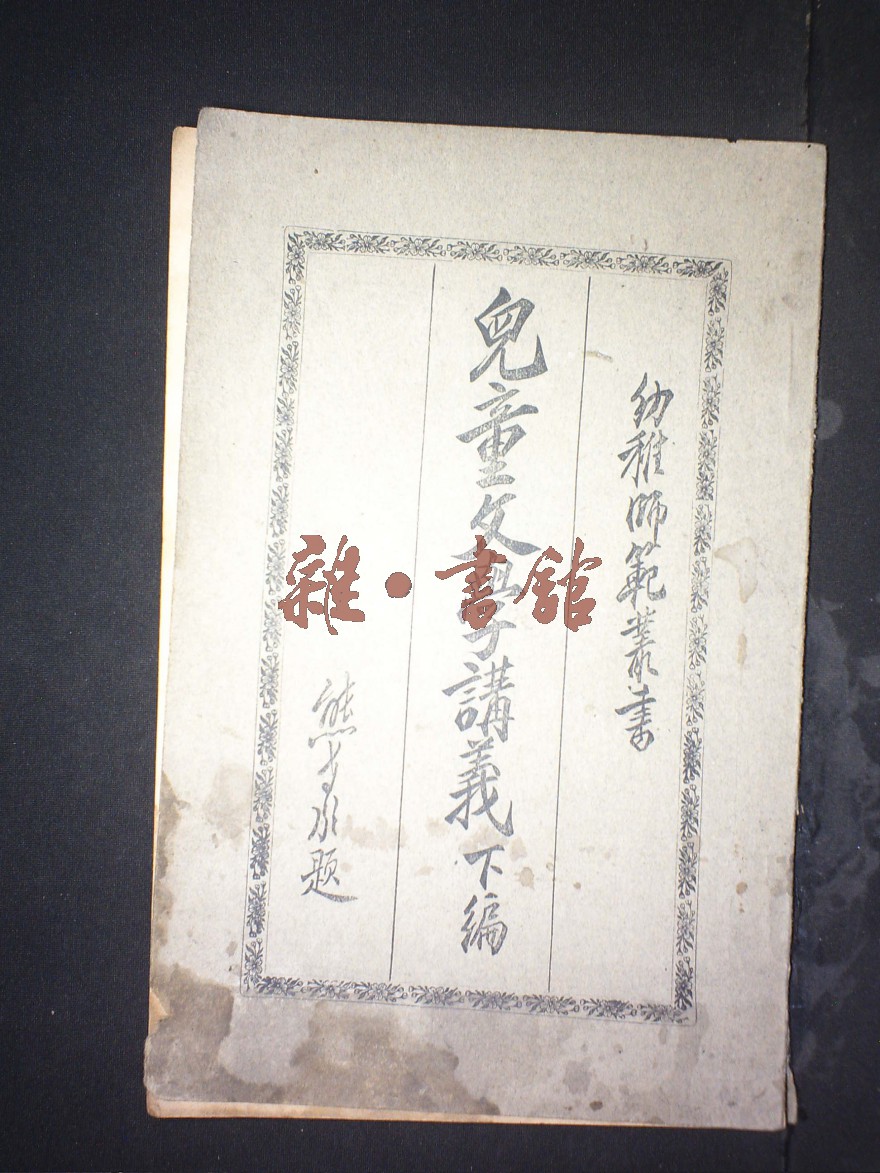 幼稚師範叢書
兒童文學講義下編
熊希齡題
雜·書館